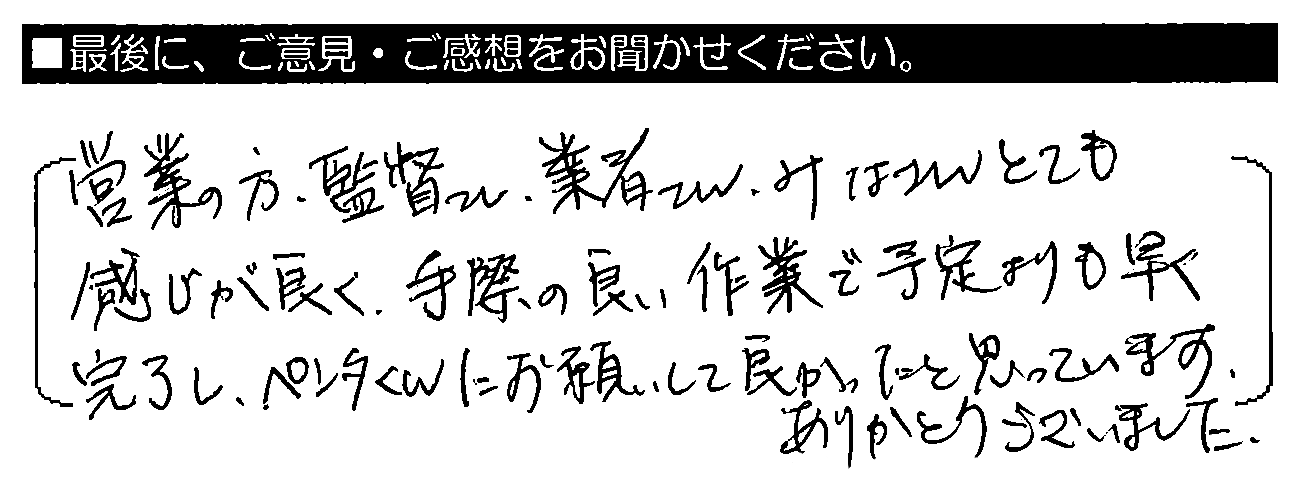 ■最後に、ご意見・ご感想をお聞かせください。
営業の方、監督さん、業者さん、みなさんとても
感じが良く、手際の良い作業で予定よりも早く
完了し、ペンタくんにお願いして良かったと思っています。
ありがとうございました。